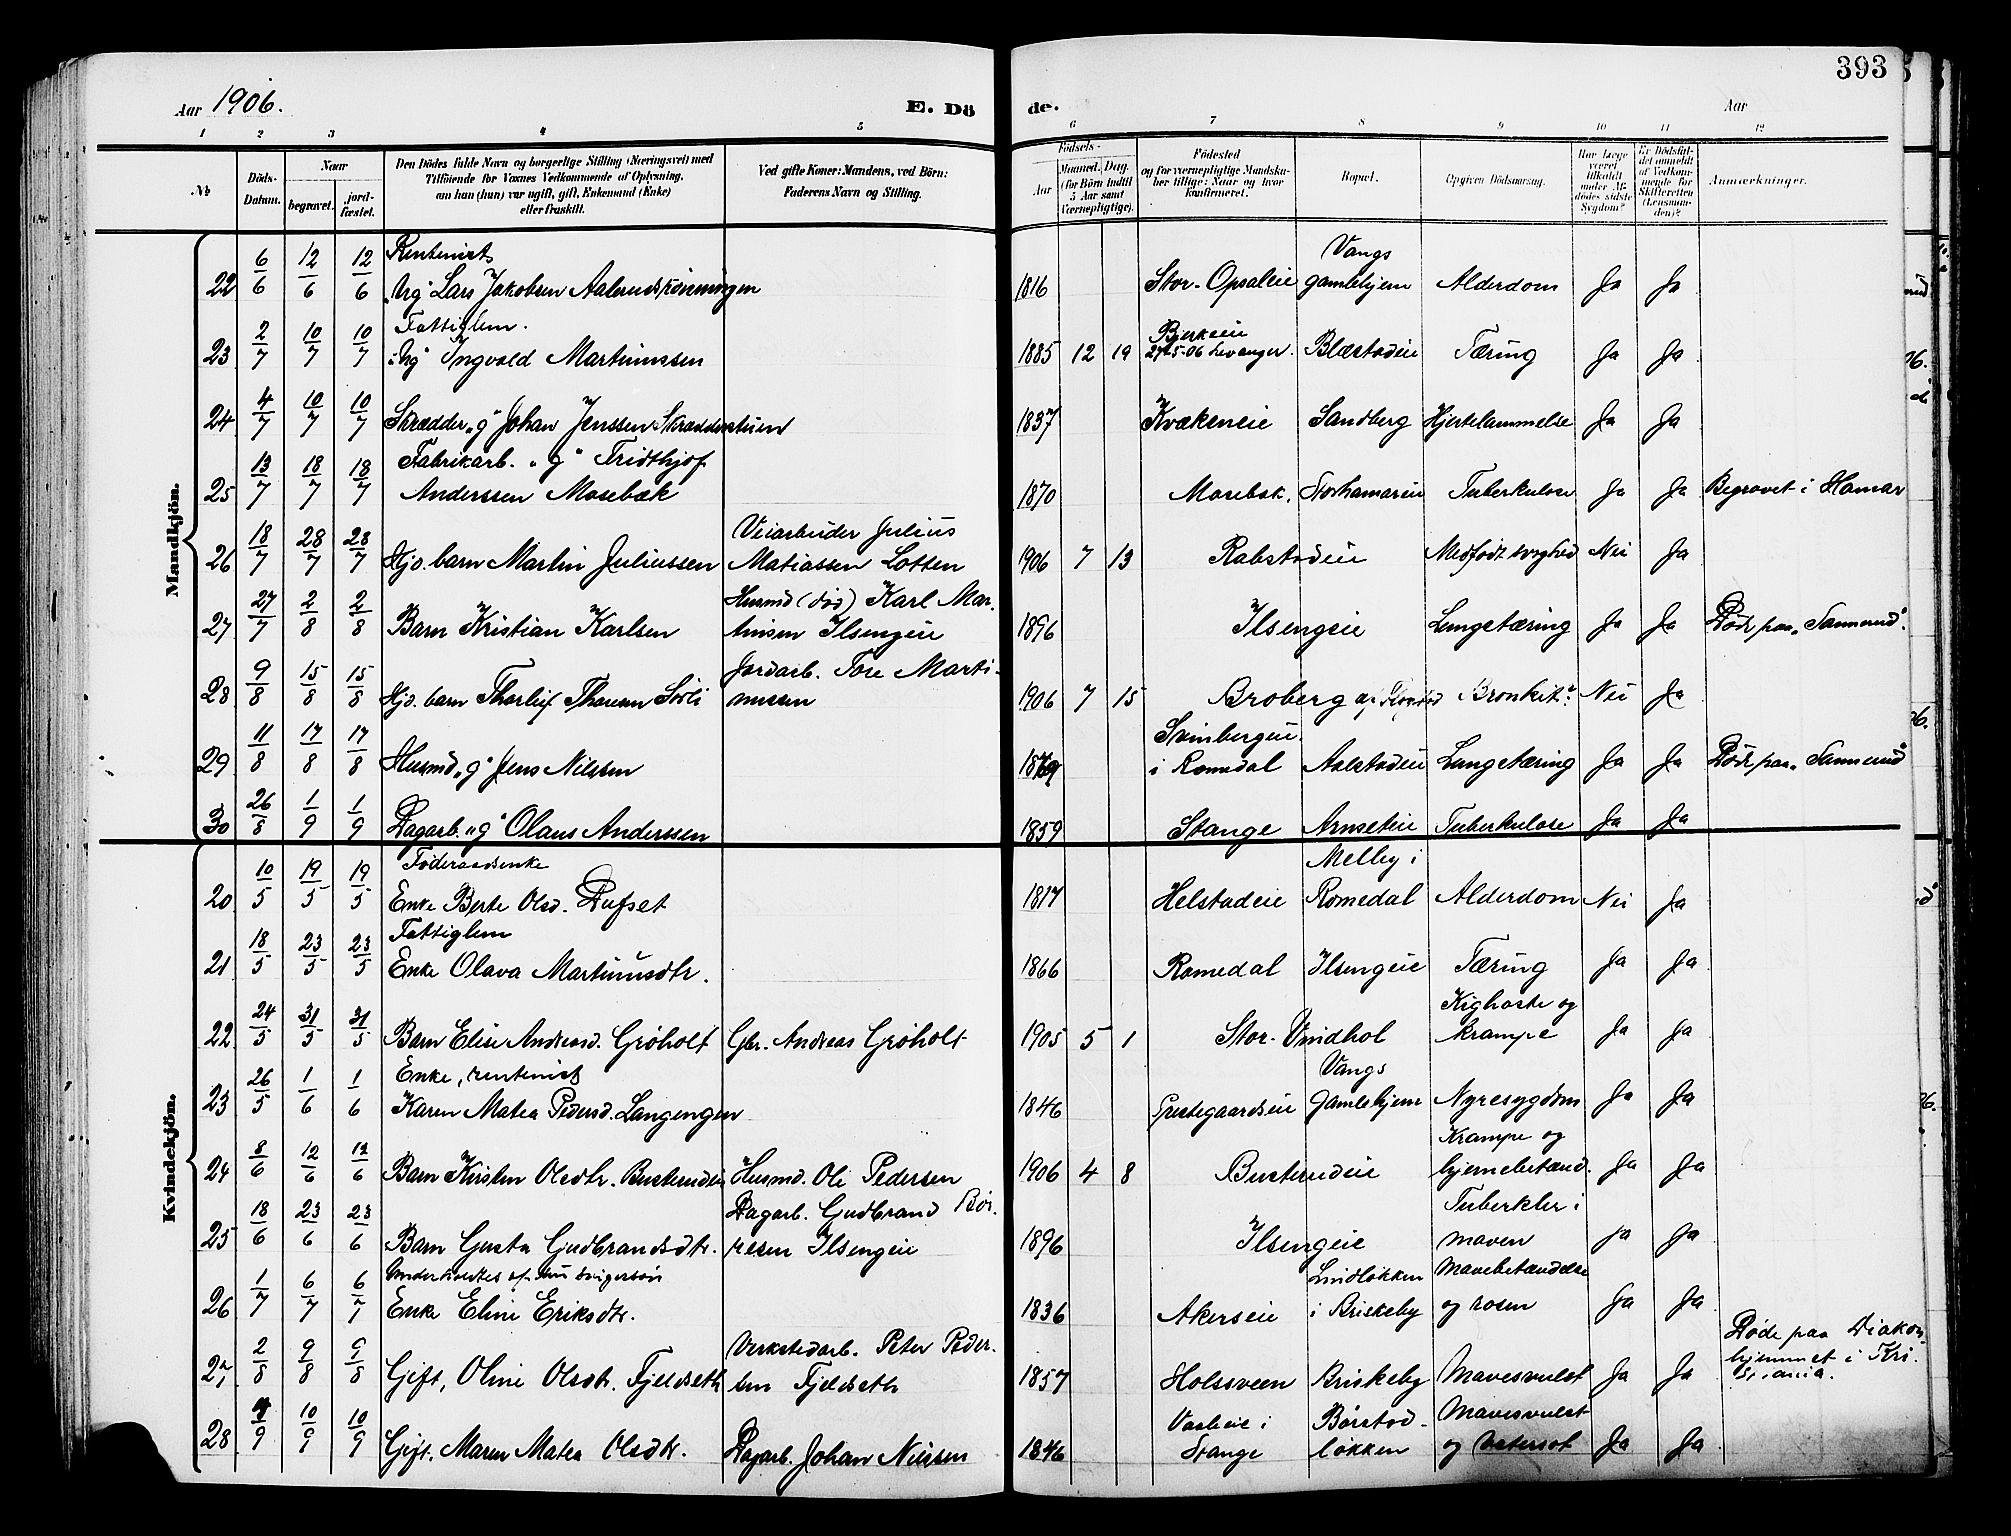 393
Aar 1906.
E. Dö de.
Aar
1 2 3 4 5 6 7 8 9 10 11 12
No
Döds-Datum.
Naar
begravet.
jord-fæstet.
Den Dödes fulde Navn og borgerlige Stilling (Næringsvei) med
Tilföiende for Voxnes Vedkommende af Oplysning,
om han (hun) var ugift, gift, Enkemand (Enke)
eller fraskilt.
Ved gifte Koner: Mandens, ved Börn:
Faderens Navn og Stilling.
Födsels-
Aar
Maaned. Dag.
(for Börn indtil
5 Aar samt
Værnepligtige).
Födested
og for værnepligtige Mandska-
ber tillige: Naar og hvor
konfirmeret.
Bopæl.
Opgiven Dödsaarsag.
Har Læge
været
tilkaldt
under Af-
dödes sidste
Sygdom?
Er Dödsfal-
det anmeldt
af Vedkom-
mende for
Skifteretten
(Lensman-
den)?
Anmærkninger.
Mandkjön.
Rentenist Vangs
22 6/6 12/6 12/6 "Ug" Lars Jakobsen Aalund 1816 Stor-Opsaleie gamlehjem Alderdom Ja Ja
Fattiglem. Bjerkeie
23 2/7 10/7 10/7 "Ug" Ingvald Martinussen 1885 12 19 27-5-06 Levanger. Blæstadeie Tæring Ja Ja
24 4/7 10/7 10/7 Skrædder "g" Johan Jenssen Skrædderstuen 1837 Kvækeneie Sandberg Hjertelammelse Ja Ja
Fabrikarb. "g" Fridthjof
25 13/7 18/7 18/7 Anderssen Mosebæk 1870 Mosebæk. Nordhamareie Tuberkulose Ja Ja Begravet i Hamar
Veiarbeider Julius
26 18/7 28/7 28/7 Hjd. barn Martin Juliussen Matiassen Lotten 1906 7 13 Rabstadeie Medfødt svaghed Nei Ja
Husmd (død) Karl Mar-
27 27/7 2/8 2/8 Barn Kristian Karlsen tinsen Ilsengeie 1896 Ilsengeie Lungetæring Ja Ja Døde paa "Sannerud".
Jordarb. Tore Marti-
28 9/8 15/8 15/8 Hjd. barn Thorleif Thoresen Sørli nussen 1906 7 15 Broberg af Bronkit: Nei Ja
Svinbergeie
29 11/8 17/8 17/8 Husmd "g" Jens Nilssen i Romedal Aalstadeie Lungetæring Ja Ja Døde paa "Sannerud"
30 26/8 1/9 1/9 Dagarb. "g" Olaus Anderssen 1859 Stange Arnseteie Tuberkulose Ja Ja
Kvindekjön.
Føderaadsenke Melby i
20 10/5 19/5 19/5 Enke Berte Olsd. Dufset 1817 Helstadeie Romedal Alderdom Nei Ja
Fattiglem
21 18/5 23/5 23/5 Enke Olava Martinusdtr. 1866 Romedal Ilsengeie Tæring Ja Ja
Kighoste og
22 24/5 31/5 31/5 Barn Elise Andreasd. Grøholt Gbr. Andreas Grøholt 1905 5 1 Stor-Vindhol krampe Ja Ja
Enke, rentenist Vangs
23 26/5 1/6 1/6 Karen Matea Pedersd. Langengen 1846 Prestegaardseie Gamlehjem Nyresygdom Ja Ja
Krampe og
24 8/6 12/6 12/6 Barn Kirsten Olsdtr. Busterudeie Husmd. Ole Pedersen 1906 4 8 Busterudeie hjernebetænd. Ja Ja
Dagarb. Gudbrand Bør- Tuberkler i
25 18/6 23/6 23/6 Barn Gusta Gudbrandsdtr. resen Ilsengeie 1896 Ilsengeie maven Ja Ja
Underholdtes af sin svigersøn Lindløkken Mavebetændelse
26 1/7 6/7 6/7 Enke Eline Eriksdtr. 1836 Akerseie i Briskeby og rosen Ja Ja
Verkstedarb. Peter Peder- Døde paa Diakon-
27 2/8 9/8 9/8 Gift, Oline Olsdtr. Fjeldseth sen Fjeldseth 1857 Holssveen Briskeby Mavesvulst Ja Ja hjemmet i Kri-
stiania.
Vasleie i Børstad- Mavesvulst
28 4/9 10/9 10/9 Gift. Maren Matea Olsdtr. Dagarb. Johan Nilssen 1846 Stange løkken og vatersot Ja Ja